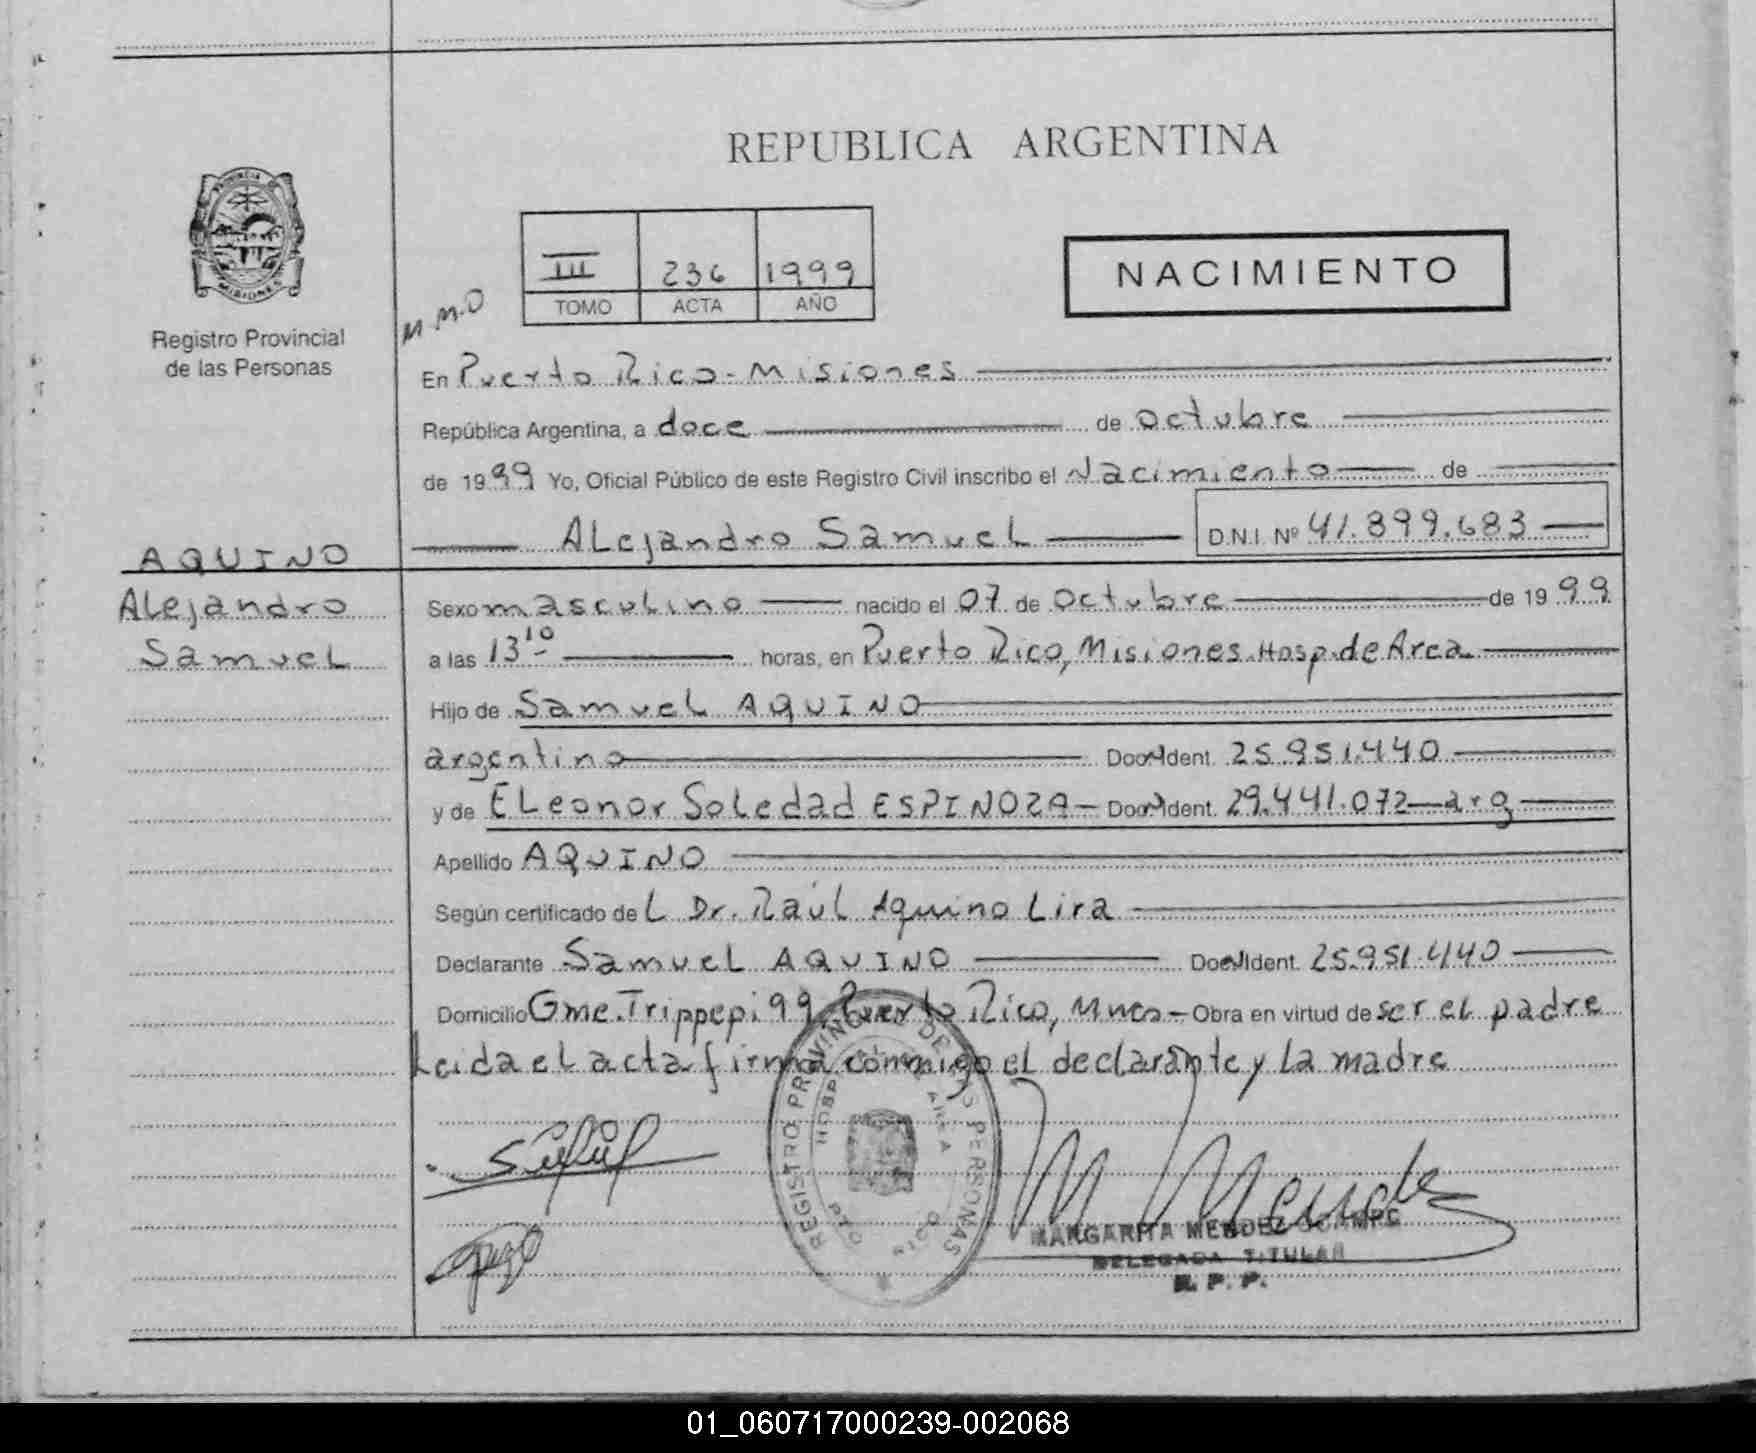 REPUBLICA ARGENTINA
PROVINCIA DE
MISIONES
Registro Provincial
de las Personas
III 236 1999
TOMO ACTA AÑO
NACIMIENTO
M.M.O
En Puerto Rico - Misiones
República Argentina, a doce de octubre
de 1999 Yo, Oficial Público de este Registro Civil inscribo el Nacimiento de
Alejandro Samuel D.N.I. Nº 41.899.683
AQUINO
Alejandro
Samuel
Sexo masculino nacido el 07 de Octubre de 1999
a las 13¹⁰ horas, en Puerto Rico, Misiones. Hosp. de Area
Hijo de Samuel AQUINO
argentino Doc. Ident. 25.951.440
y de Eleonor Soledad ESPINOZA - Doc. Ident. 29.441.072 - arg
Apellido AQUINO
Según certificado del Dr. Raúl Aquino Lira
Declarante Samuel AQUINO Doc. Ident. 25.951.440
Domicilio Gme. Trippepi 99, Puerto Rico, Mnes - Obra en virtud de ser el padre
Leida el acta firma conmigo el declarante y la madre
REGISTRO PROVINCIAL DE LAS PERSONAS
MARGARITA MENDEZ OCAMPO
DELEGADA TITULAR
R. P. P.
01_060717000239-002068